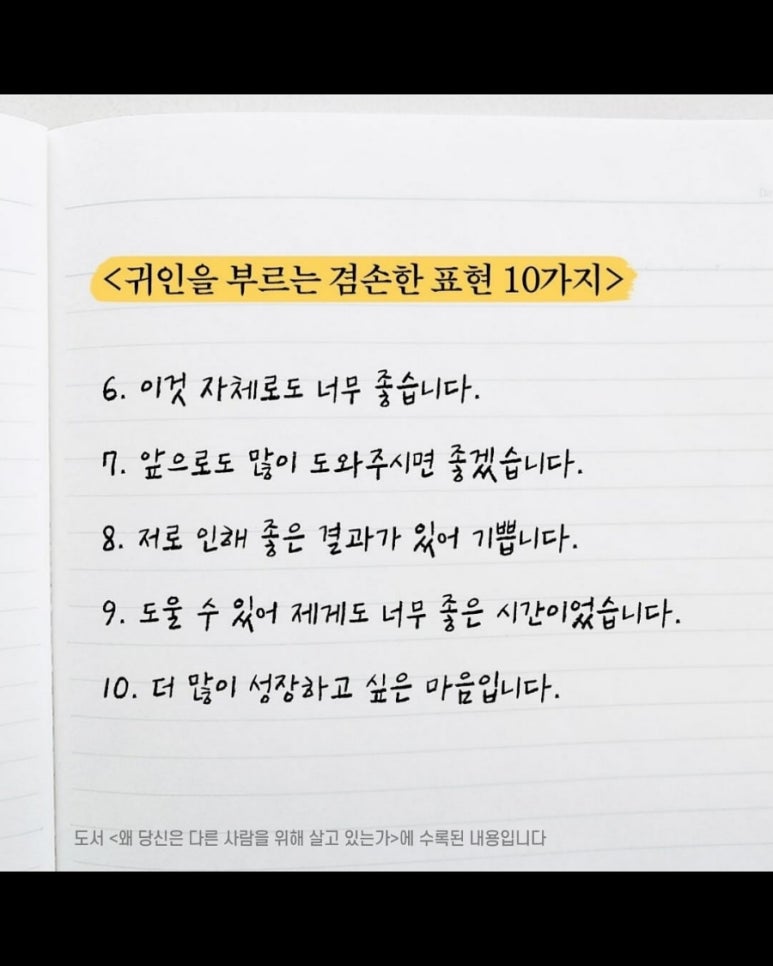 <귀인을 부르는 겸손한 표현 10가지>
6. 이것 자체로도 너무 좋습니다.
7. 앞으로도 많이 도와주시면 좋겠습니다.
8. 저로 인해 좋은 결과가 있어 기쁩니다.
9. 도울 수 있어 제게도 너무 좋은 시간이었습니다.
10. 더 많이 성장하고 싶은 마음입니다.
도서 <왜 당신은 다른 사람을 위해 살고 있는가>에 수록된 내용입니다